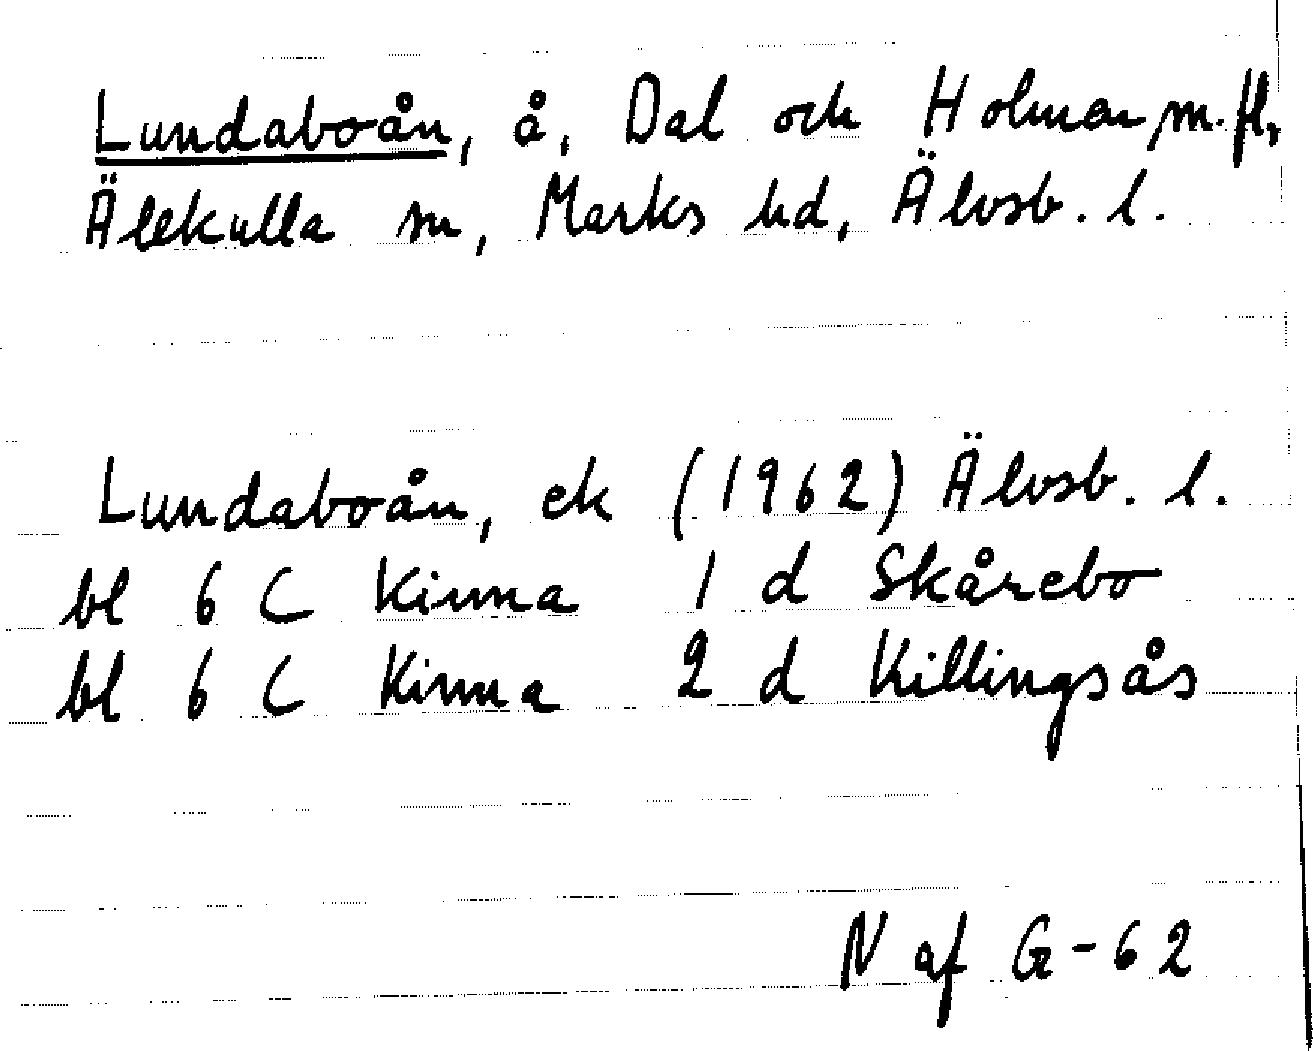 Lundaboån, å, Dal och Holmar m.fl,
Älekulla sn, Marks hd, Älvsb. l.
Lundaboån, ek (1962) Älvsb. l.
bl 6 C Kinna 1 d Skårebo
bl 6 C Kinna 2 d Killingsås
N af G-62